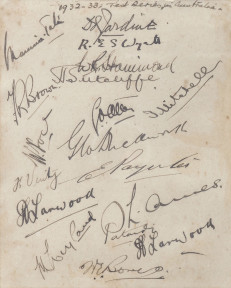 1932-33. Test Series in Australia.
Maurice Tate
D R Jardine
R. E. S Wyatt
W R Hammond
F R Brown
H Sutcliffe
G O Allen
T B Mitchell
W Voce
G Macaulay
H. Verity
E Paynter
H Larwood
M Leyland
L. Ames
Pataudi
H Larwood
W Bowes